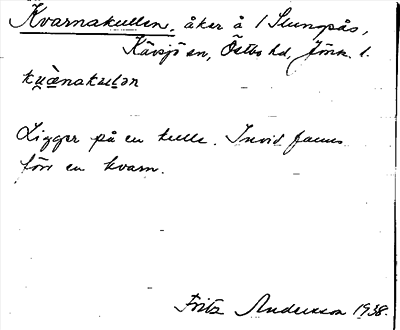 Kvarnakullen, åker å 1 Slungsås,
Kävsjö sn, Östbo hd, Jönk. l.
kɯànakɯlən
Ligger på en kulle. Invid fanns
förr en kvarn.
Fritz Andersson 1938.